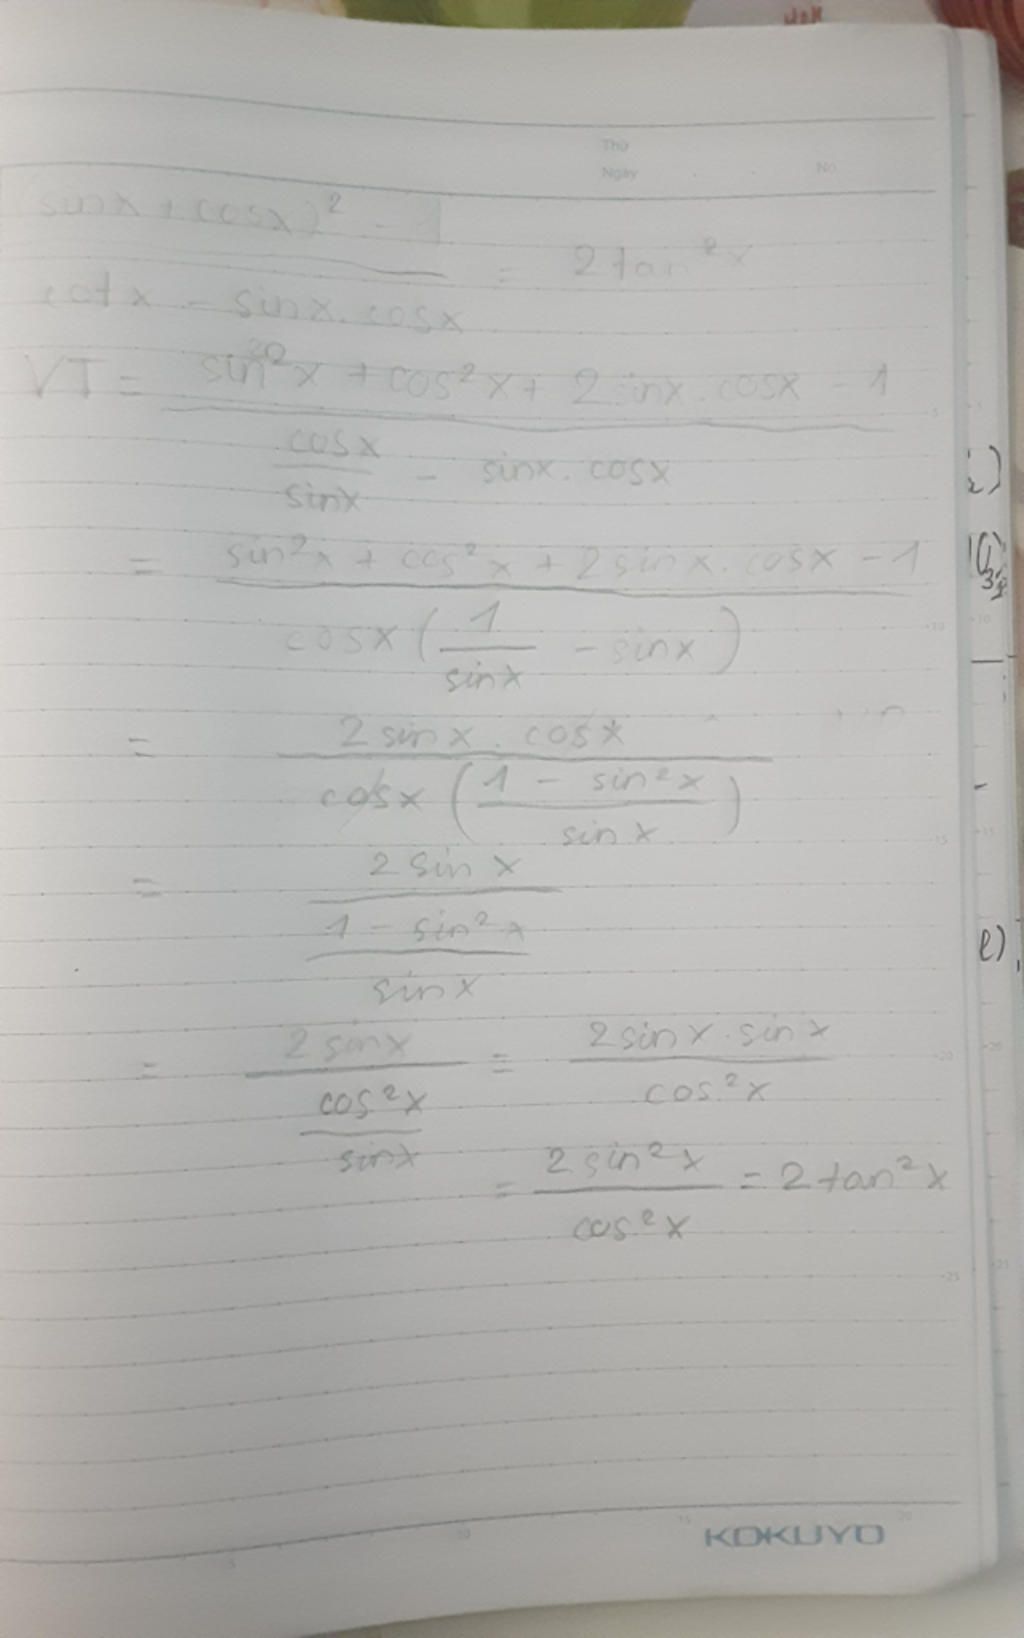 Thứ
Ngày No.
(sinx + cosx)² - 1
cotx - sinx.cosx
= 2tan²x
VT = sin²x + cos²x + 2sinx.cosx - 1
cosx
sinx
- sinx.cosx
= sin²x + cos²x + 2sinx.cosx - 1
cosx ( 1
sinx
- sinx )
= 2sinx.cosx
cosx ( 1 - sin²x
sinx )
= 2sinx
1 - sin²x
sinx
= 2sinx
cos²x
sinx
= 2sinx.sinx
cos²x
= 2sin²x
cos²x
= 2tan²x
e)
KOKUYO